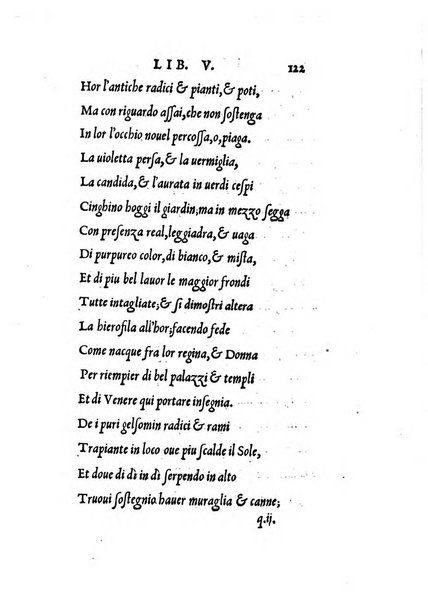 LIB. V. 122
Hor l'antiche radici & pianti, & poti,
Ma con riguardo aſſai, che non ſoſtenga
In lor l'occhio nouel percoſſa, o, piaga.
La uioletta perſa, & la uermiglia,
La candida, & l'aurata in uerdi ceſpi
Cinghino hoggi il giardin; ma in mezzo ſegga
Con preſenza real, leggiadra, & uaga
Di purpureo color, di bianco, & miſta,
Et di piu bel lauor le maggior frondi
Tutte intagliate; & ſi dimoſtri altera
La hieroſila all'hor; facendo fede
Come nacque fra lor regina, & Donna
Per riempier di bel palazzi & templi
Et di Venere qui portare inſegnia.
De i puri gelſomin radici & rami
Trapiante in loco oue piu ſcalde il Sole,
Et doue di dì in dì ſerpendo in alto
Truoui ſoſtegnio hauer muraglia & canne;
q.ij.